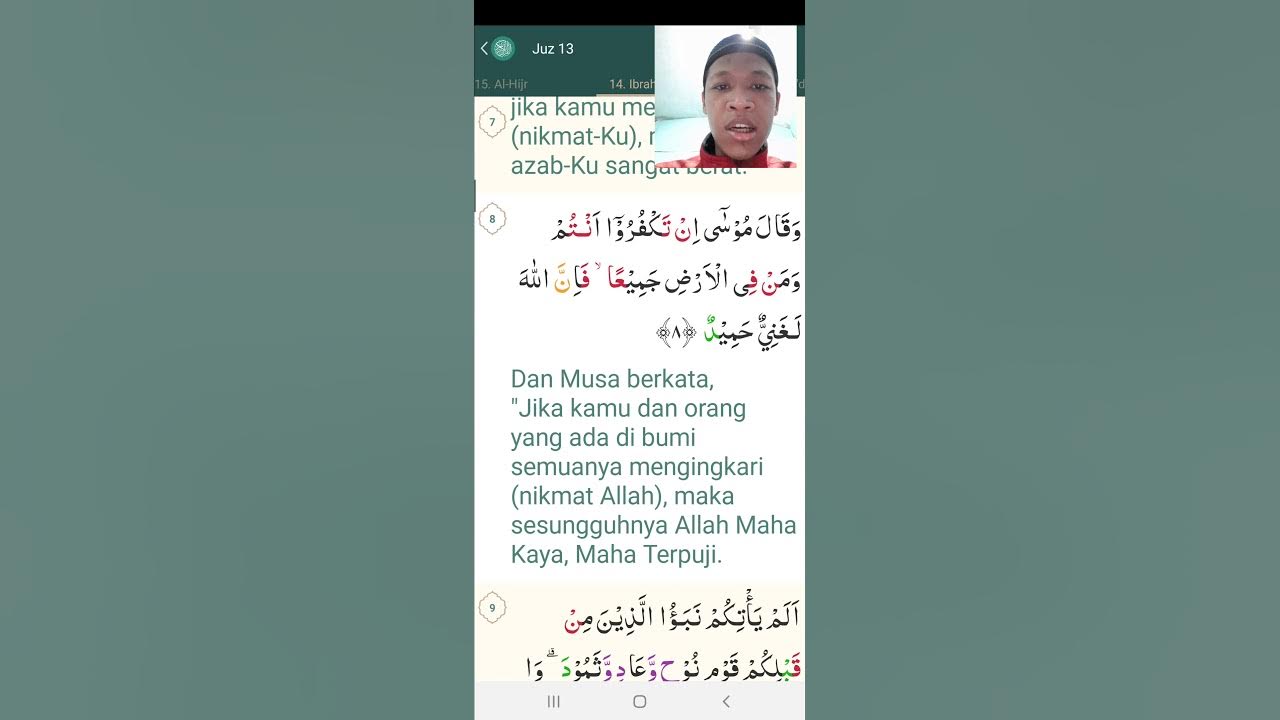 Juz 13
15. Al-Hijr
14. Ibrah
7
jika kamu me
(nikmat-Ku),
azab-Ku sangat berat.
8
وَقَالَ مُوْسٰٓى اِنْ تَكْفُرُوْٓا اَنْتُمْ
وَمَنْ فِى الْاَرْضِ جَمِيْعًا ۙ فَاِنَّ اللّٰهَ
لَـغَنِيٌّ حَمِيْدٌ ﴿٨﴾
Dan Musa berkata,
"Jika kamu dan orang
yang ada di bumi
semuanya mengingkari
(nikmat Allah), maka
sesungguhnya Allah Maha
Kaya, Maha Terpuji.
9
اَلَمْ يَأْتِكُمْ نَبَـؤُا الَّذِيْنَ مِنْ
قَبْلِكُمْ قَوْمِ نُوْحٍ وَّعَادٍ وَّثَمُوْدَ ۗ وَا